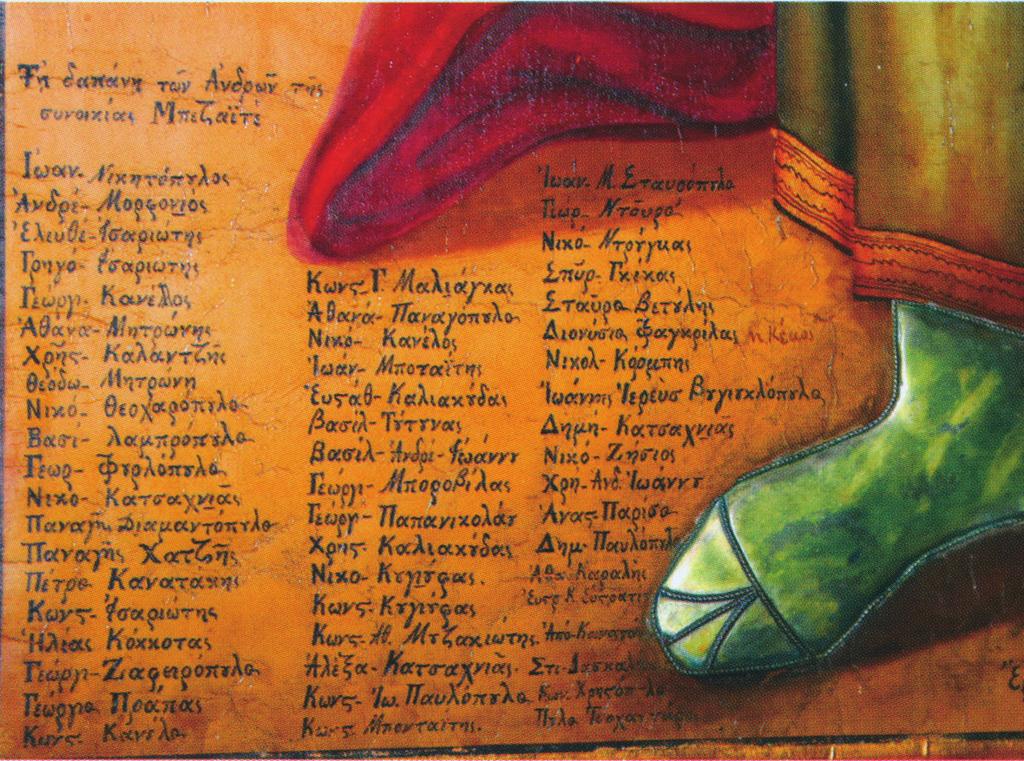 Τῇ δαπάνῃ τῶν Ἀνδρῶν τῆς
συνοικίας Μπεζαϊτὲ
Ἰωαν. Νικητόπȣλος
Ἀνδρέ- Μορφονιός
Ἐλευθέ- Ἰσαριώτης
Γρηγο- Ἰσαριώτης
Γεώργι- Κανέλλος
Ἀθανα- Μητρώνης
Χρῆς- Καλαντζῆς
Θεόδω- Μητρώνη
Νικό- Θεοχαρόπȣλο-
Βασί- Λαμπροπȣλο
Γεωρ- Φȣρλόπȣλο
Νικο- Κατσαχνιᾶς
Παναγῆ Διαμαντόπȣλο
Παναγῆς Χατζῆς
Πέτρο Κανατάκης
Κωνς- Ἰσαριώτης
Ἠλίας Κόκκοτας
Γεώργι- Ζαφειρόπȣλο
Γεώργιο Πράπας
Κωνς- Κανέλο
Κωνς- Γ. Μαλιάγκας
Ἀθανά- Παναγόπȣλο
Νικό- Κανέλος
Ἰωάν- Μποταΐτης
Εὐςάθ- Καλιακύδας
Βασίλ- Τύτυνας
Βασίλ- Ἀνδρέ- Ἰωάννȣ
Γεώργι- Μποροβίλας
Γεώργ- Παπανικολάȣ
Χρῆς- Καλιακύδας
Νικο- Κȣγιύφας.
Κωνς- Κȣγιύφας
Κωνς- Ἀθ. Μȣζακιώτης
Ἀλέξα- Κατσαχνιᾶς.
Κωνς- Ἰω. Παυλόπȣλο
Κωνς- Μπονταίτης.
Ἰωάν. Μ. Σταυρόπȣλο
Γεωρ- Ντȣρο
Νικό- Ντρύγκας
Σπῦρ- Γκέκας
Σταῦρο Βετȣλης
Διονύσιο Φαγκρίλας Μ. Κέκος
Νικολ- Κόρμπης
Ἰωάννης Ἱερεὺς Βȣγιȣκλόπȣλο
Δημή- Κατσαχνιᾶς
Νικο- Ζήσιος
Χρη- Ἀνδ. Ἰωάννȣ
Ἀνας- Παρίσο
Δημ- Παυλόπȣλο
Ἀθα- Καραλῆς
Στι- Δασκαλ
Κων. Χρηςόπ-λο